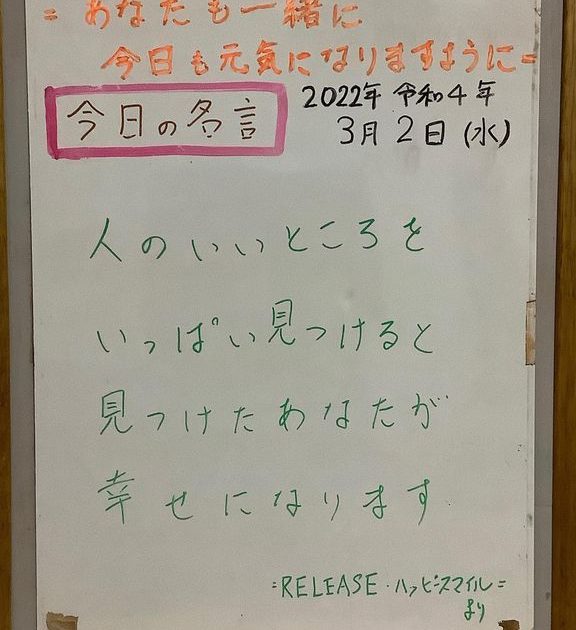 =あなたも一緒に
今日も元気になりますように=
今日の名言
2022年 令和4年
3月2日(水)
人のいいところを
いっぱい見つけると
見つけたあなたが
幸せになります
=RELEASE・ハッピースマイル=
より